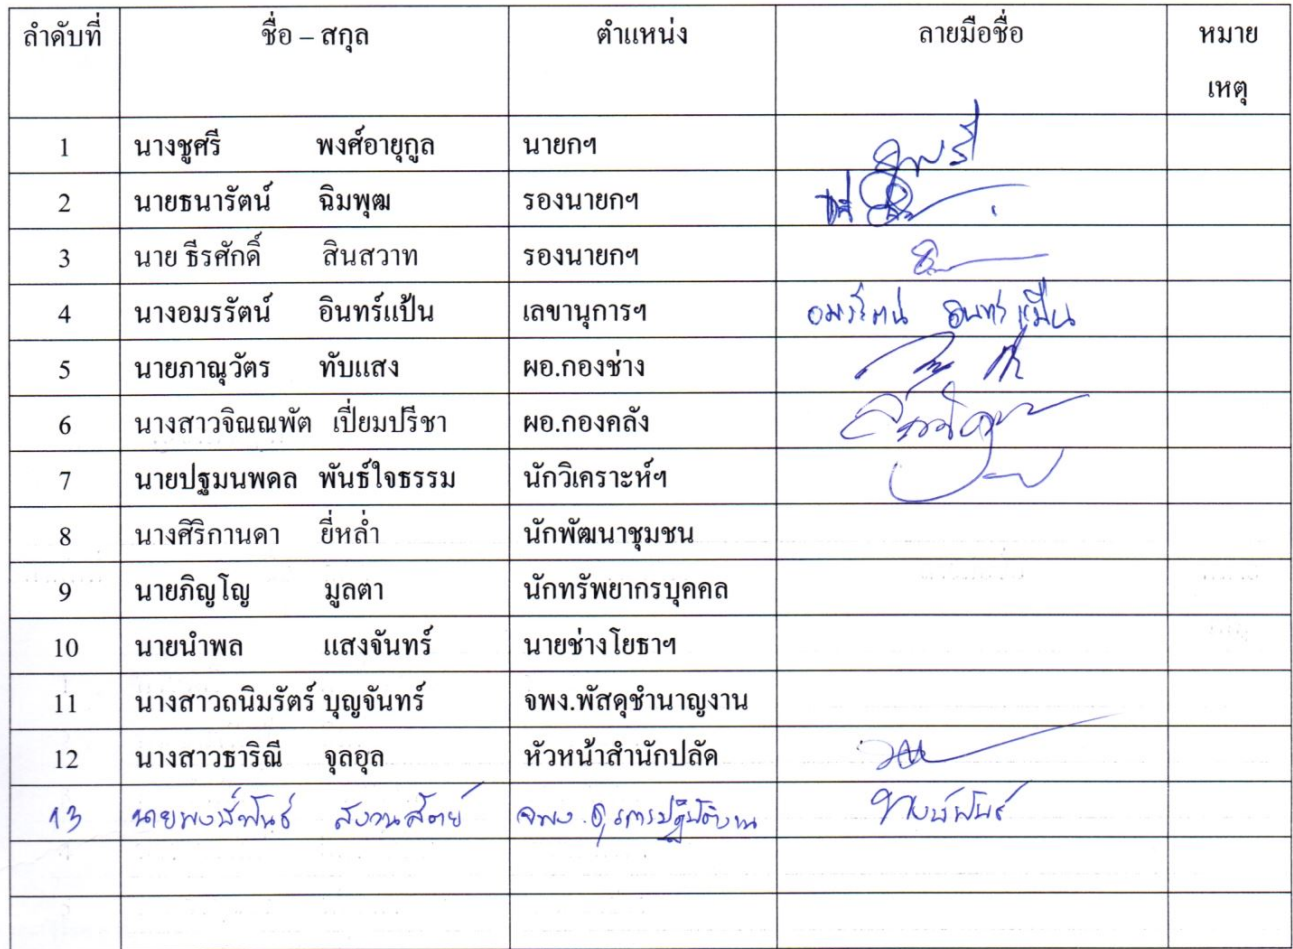 ลำดับที่ ชื่อ – สกุล ตำแหน่ง ลายมือชื่อ หมาย
เหตุ
1 นางชูศรี พงศ์อายุกูล นายกฯ
2 นายธนารัตน์ ฉิมพุฒ รองนายกฯ
3 นาย ธีรศักดิ์ สินสวาท รองนายกฯ
4 นางอมรรัตน์ อินทร์แป้น เลขานุการฯ อมรรัตน์ อินทร์แป้น
5 นายภาณุวัตร ทับแสง ผอ.กองช่าง
6 นางสาวจิณณพัต เปี่ยมปรีชา ผอ.กองคลัง
7 นายปฐมนพดล พันธ์ใจธรรม นักวิเคราะห์ฯ
8 นางศิริกานดา ยี่หล่ำ นักพัฒนาชุมชน
9 นายภิญโญ มูลตา นักทรัพยากรบุคคล
10 นายนำพล แสงจันทร์ นายช่างโยธาฯ
11 นางสาวถนิมรัตร์ บุญจันทร์ จพง.พัสดุชำนาญงาน
12 นางสาวธาริณี จุลอุล หัวหน้าสำนักปลัด
13 นายพงษ์พันธ์ สงวนสัตย์ จพง.ธุรการปฏิบัติงาน พงษ์พันธ์